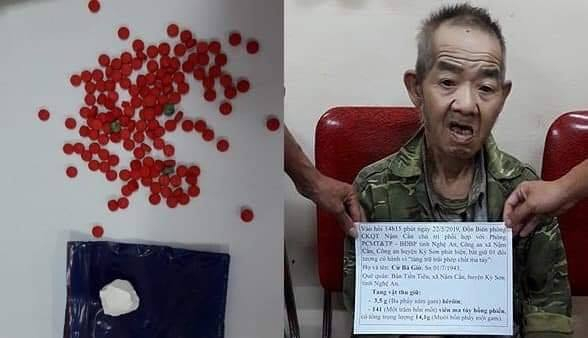 Vào hồi 14h15 phút ngày 22/5/2019, Đồn Biên phòng
CKQT Nậm Cắn chủ trì phối hợp với Phòng
PCMT&TP - BĐBP tỉnh Nghệ An, Công an xã Nậm
Cắn, Công an huyện Kỳ Sơn phát hiện, bắt giữ 01 đối
tượng có hành vi "tàng trữ trái phép chất ma túy".
Họ và tên: Cử Bá Giờ, Sn 01/7/1943.
Quê quán: Bản Tiền Tiêu, xã Nậm Cắn, huyện Kỳ Sơn,
tỉnh Nghệ An.
Tang vật thu giữ:
- 3,5 g (Ba phẩy năm gam) hêrôin;
- 141 (Một trăm bốn mốt) viên ma túy hồng phiến,
có tổng trọng lượng 14,1g (Mười bốn phẩy một gam).